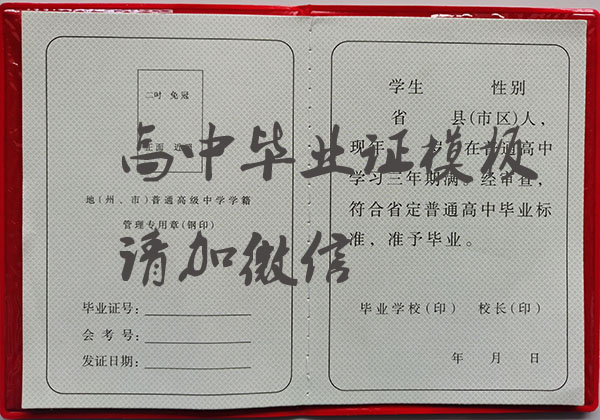 二吋 免冠
正面 近照
地(州、市)普通高级中学学籍
管理专用章(钢印)
毕业证号:
会考号:
发证日期:
学生 性别
省 县(市区)人,
现年 岁,在普通高中
学习三年期满。经审查,
符合省定普通高中毕业标
准，准予毕业。
毕业学校(印) 校长(印)
年 月 日
高中毕业证模板
请加微信